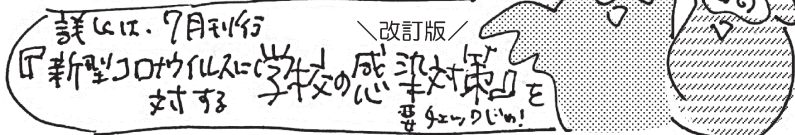 詳しくは、7月刊行
＼改訂版／
『新型コロナウイルスに対する学校の感染対策』を
要チェックじゃ!